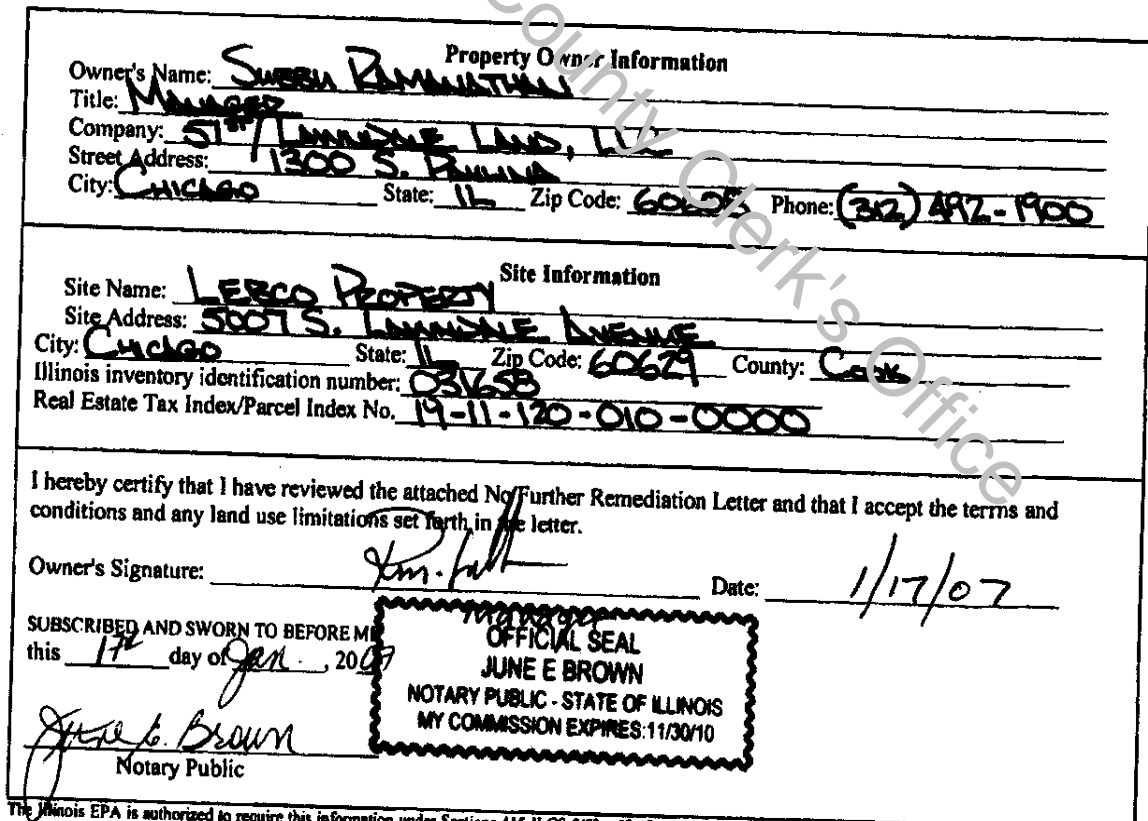 County Clerk's Office
Property Owner Information
Owner's Name: Suresh Ramanathan
Title: Manager
Company: 51st / Lawndale Land, LLC
Street Address: 1300 S. Paulina
City: Chicago State: IL Zip Code: 60608 Phone: (312) 492-1900
Site Information
Site Name: Lerco Property
Site Address: 5007 S. Lawndale Avenue
City: Chicago State: IL Zip Code: 60629 County: Cook
Illinois inventory identification number:
Real Estate Tax Index/Parcel Index No. 19-11-120-010-0000
I hereby certify that I have reviewed the attached No Further Remediation Letter and that I accept the terms and
conditions and any land use limitations set forth in the letter.
Owner's Signature: Date: 1/17/07
Manager
SUBSCRIBED AND SWORN TO BEFORE ME
this 17th day of Jan. , 2007
OFFICIAL SEAL
JUNE E BROWN
NOTARY PUBLIC - STATE OF ILLINOIS
MY COMMISSION EXPIRES:11/30/10
June E. Brown
Notary Public
The Illinois EPA is authorized to require this information under Sections